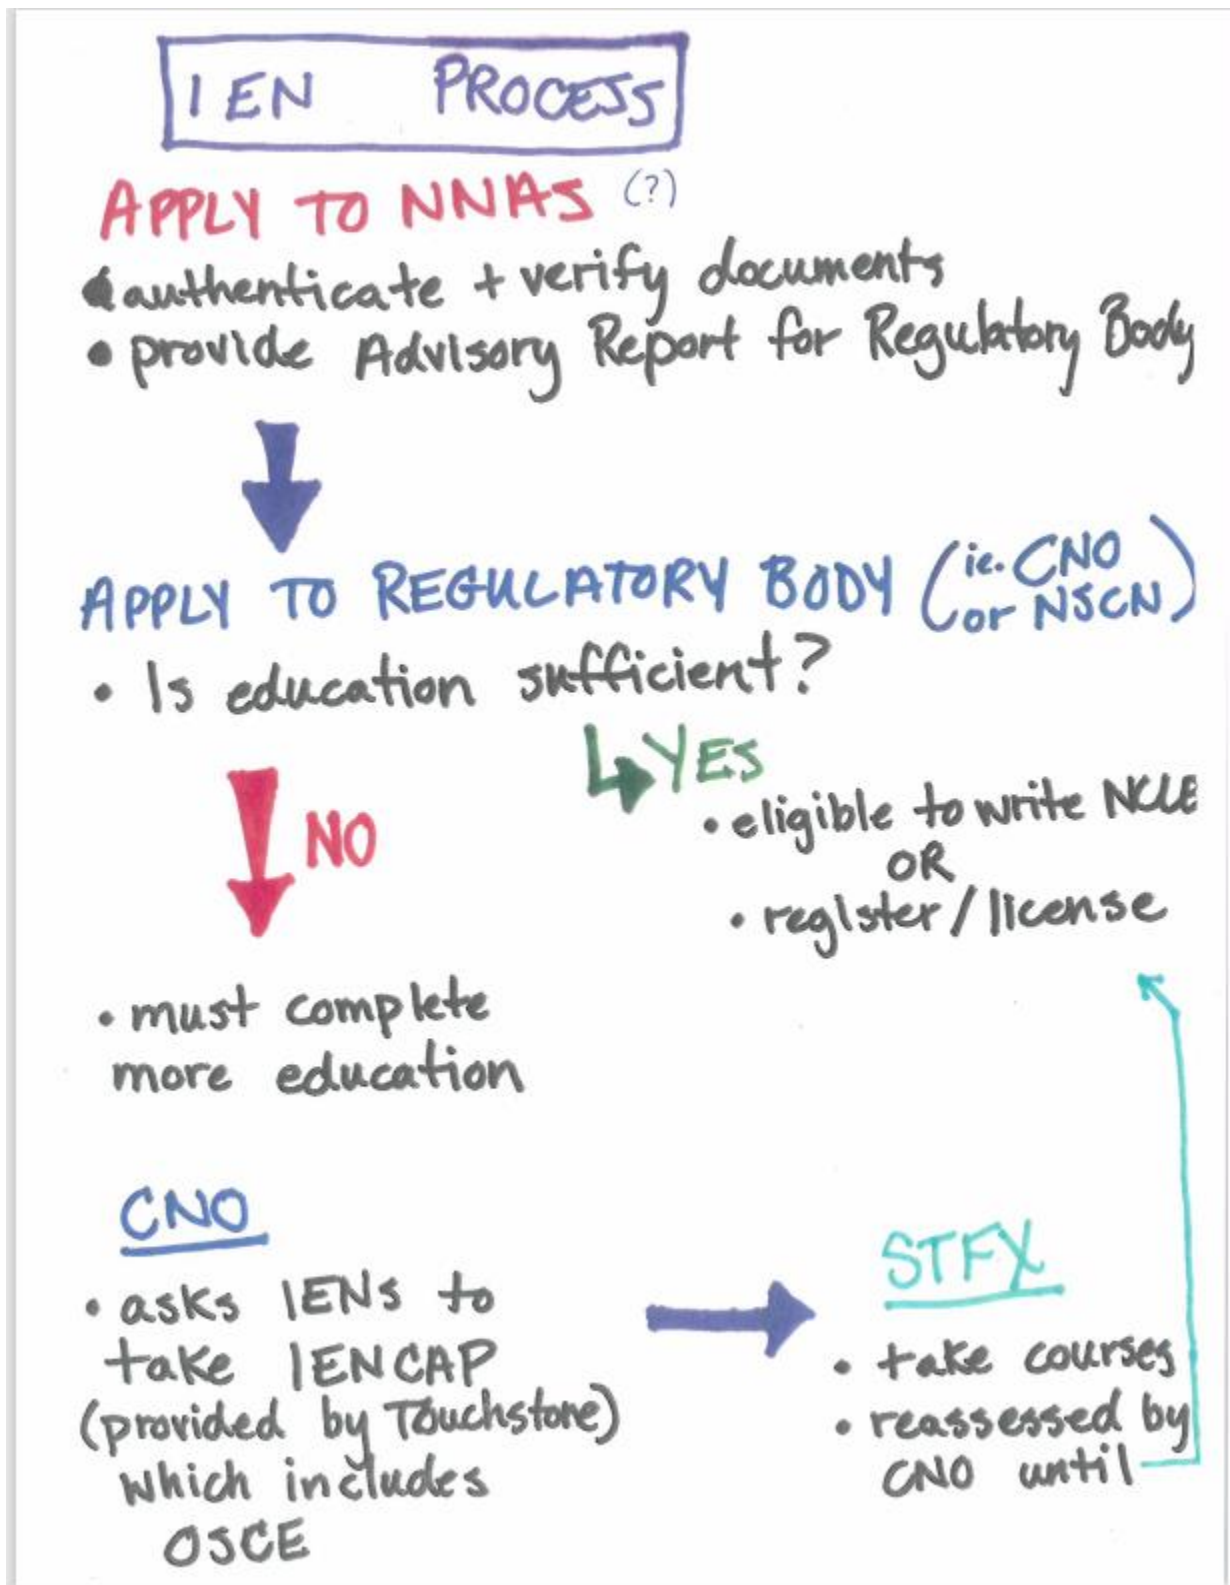 IEN PROCESS
APPLY TO NNAS (?)
• authenticate + verify documents
• provide Advisory Report for Regulatory Body
APPLY TO REGULATORY BODY (ie. CNO
or NSCN)
• Is education sufficient?
YES
• eligible to write NCLE
OR
• register/license
NO
• must complete
more education
CNO
• asks IENs to
take IENCAP
(provided by Touchstone)
which includes
OSCE
STFX
• take courses
• reassessed by
CNO until